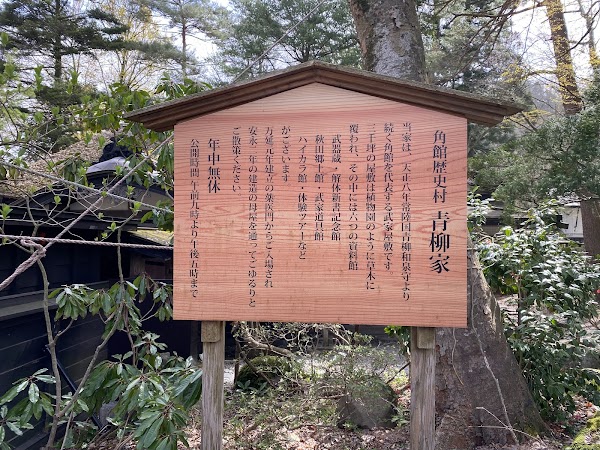 角館歴史村 青柳家
当家は、天正八年常陸国青柳和泉守より
続く角館を代表する武家屋敷です。
三千坪の屋敷は植物園のように草木に
覆われ、その中には六つの資料館
武器蔵・解体新書記念館
秋田郷土館・武家道具館
ハイカラ館・体験ツアーなど
がございます
万延元年建立の薬医門からご入場され
安永二年の建造の母屋を通ってごゆるりと
ご散策ください
年中無休
公開時間 午前九時より午後五時まで